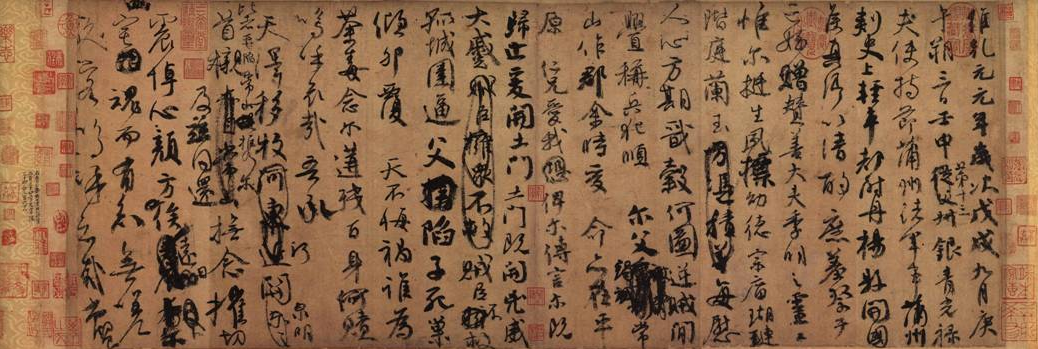 維乾元元年歲次戊戌九月庚
午朔三日壬申第十三叔銀青光祿
夫使持節蒲州諸軍事蒲州
刺史上輕車都尉丹楊縣開國
侯真卿以清酌庶羞祭于
亡姪贈贊善大夫季明之靈曰
惟爾挺生夙標幼德宗廟瑚璉
階庭蘭玉方憑積善每慰
人心方期戩穀何圖逆賊閒
釁稱兵犯順爾父竭誠常
山作郡余時受命亦在平
原仁兄愛我恐俾爾傳言爾既
歸止爰開土門土門既開兇威
大蹙賊臣擁眾不救賊臣不救
孤城圍逼父陷子死巢
傾卵覆天不悔禍誰為
荼毒念爾遘殘百身何贖
嗚呼哀哉吾承
天澤移牧河關泉明
比者再陷常山攜爾
首櫬及茲同還撫念摧切
震悼心顏方俟遠日
幽宅魂而有知無嗟
久客嗚呼哀哉尚饗